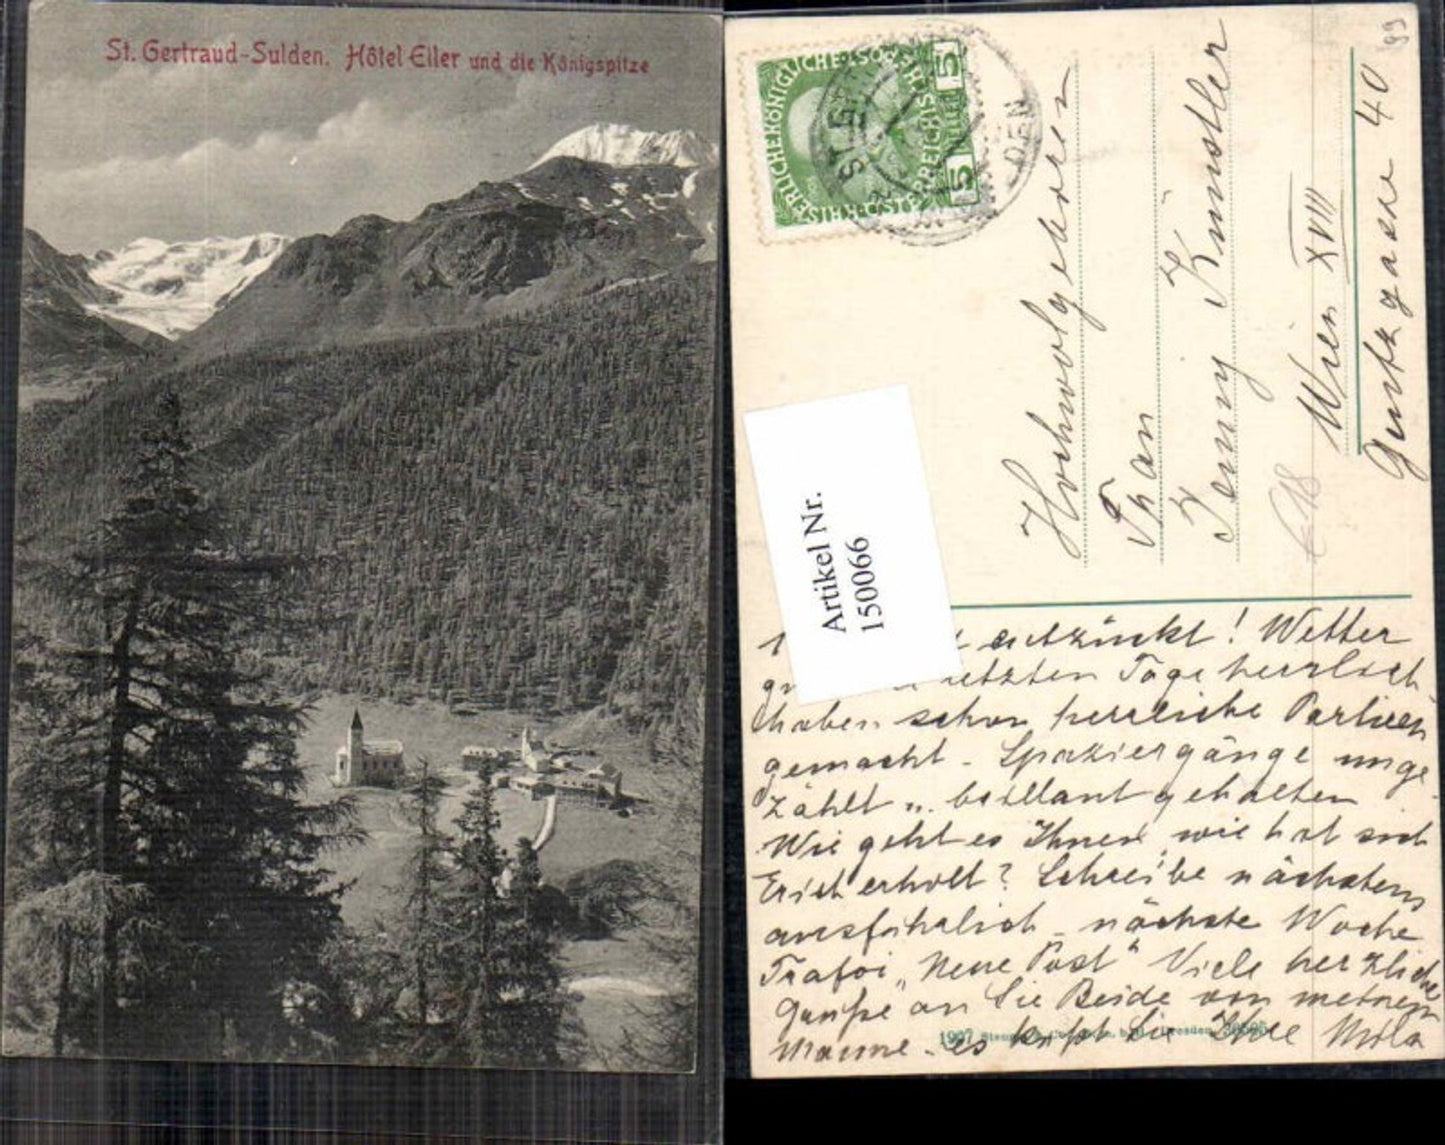 St. Gertraud-Sulden. Hôtel Eller und die Königspitze
KAISERLICHE KÖNIGLICHE ÖSTERREICHISCHE
5 5
DEN
99
Hochwolgeboren
Frau
Jenny Künstler
Wien XVIII
Gentzgasse 40
€18
Artikel Nr.
150066
entzückt! Wetter
letzten Tage herrlich
haben schon herrliche Partien
gemacht - Spaziergänge unge
zählt u. brillant gehalten
Wie geht es Ihnen, wie hat sich
Erich erholt? Schreibe nächstens
ausführlich - nächste Woche
Trafoi „Neue Post“ Viele herzliche
Grüße an Sie Beide von meinem
Manne - es küsst Sie Ihre Mila
1907 Dresden